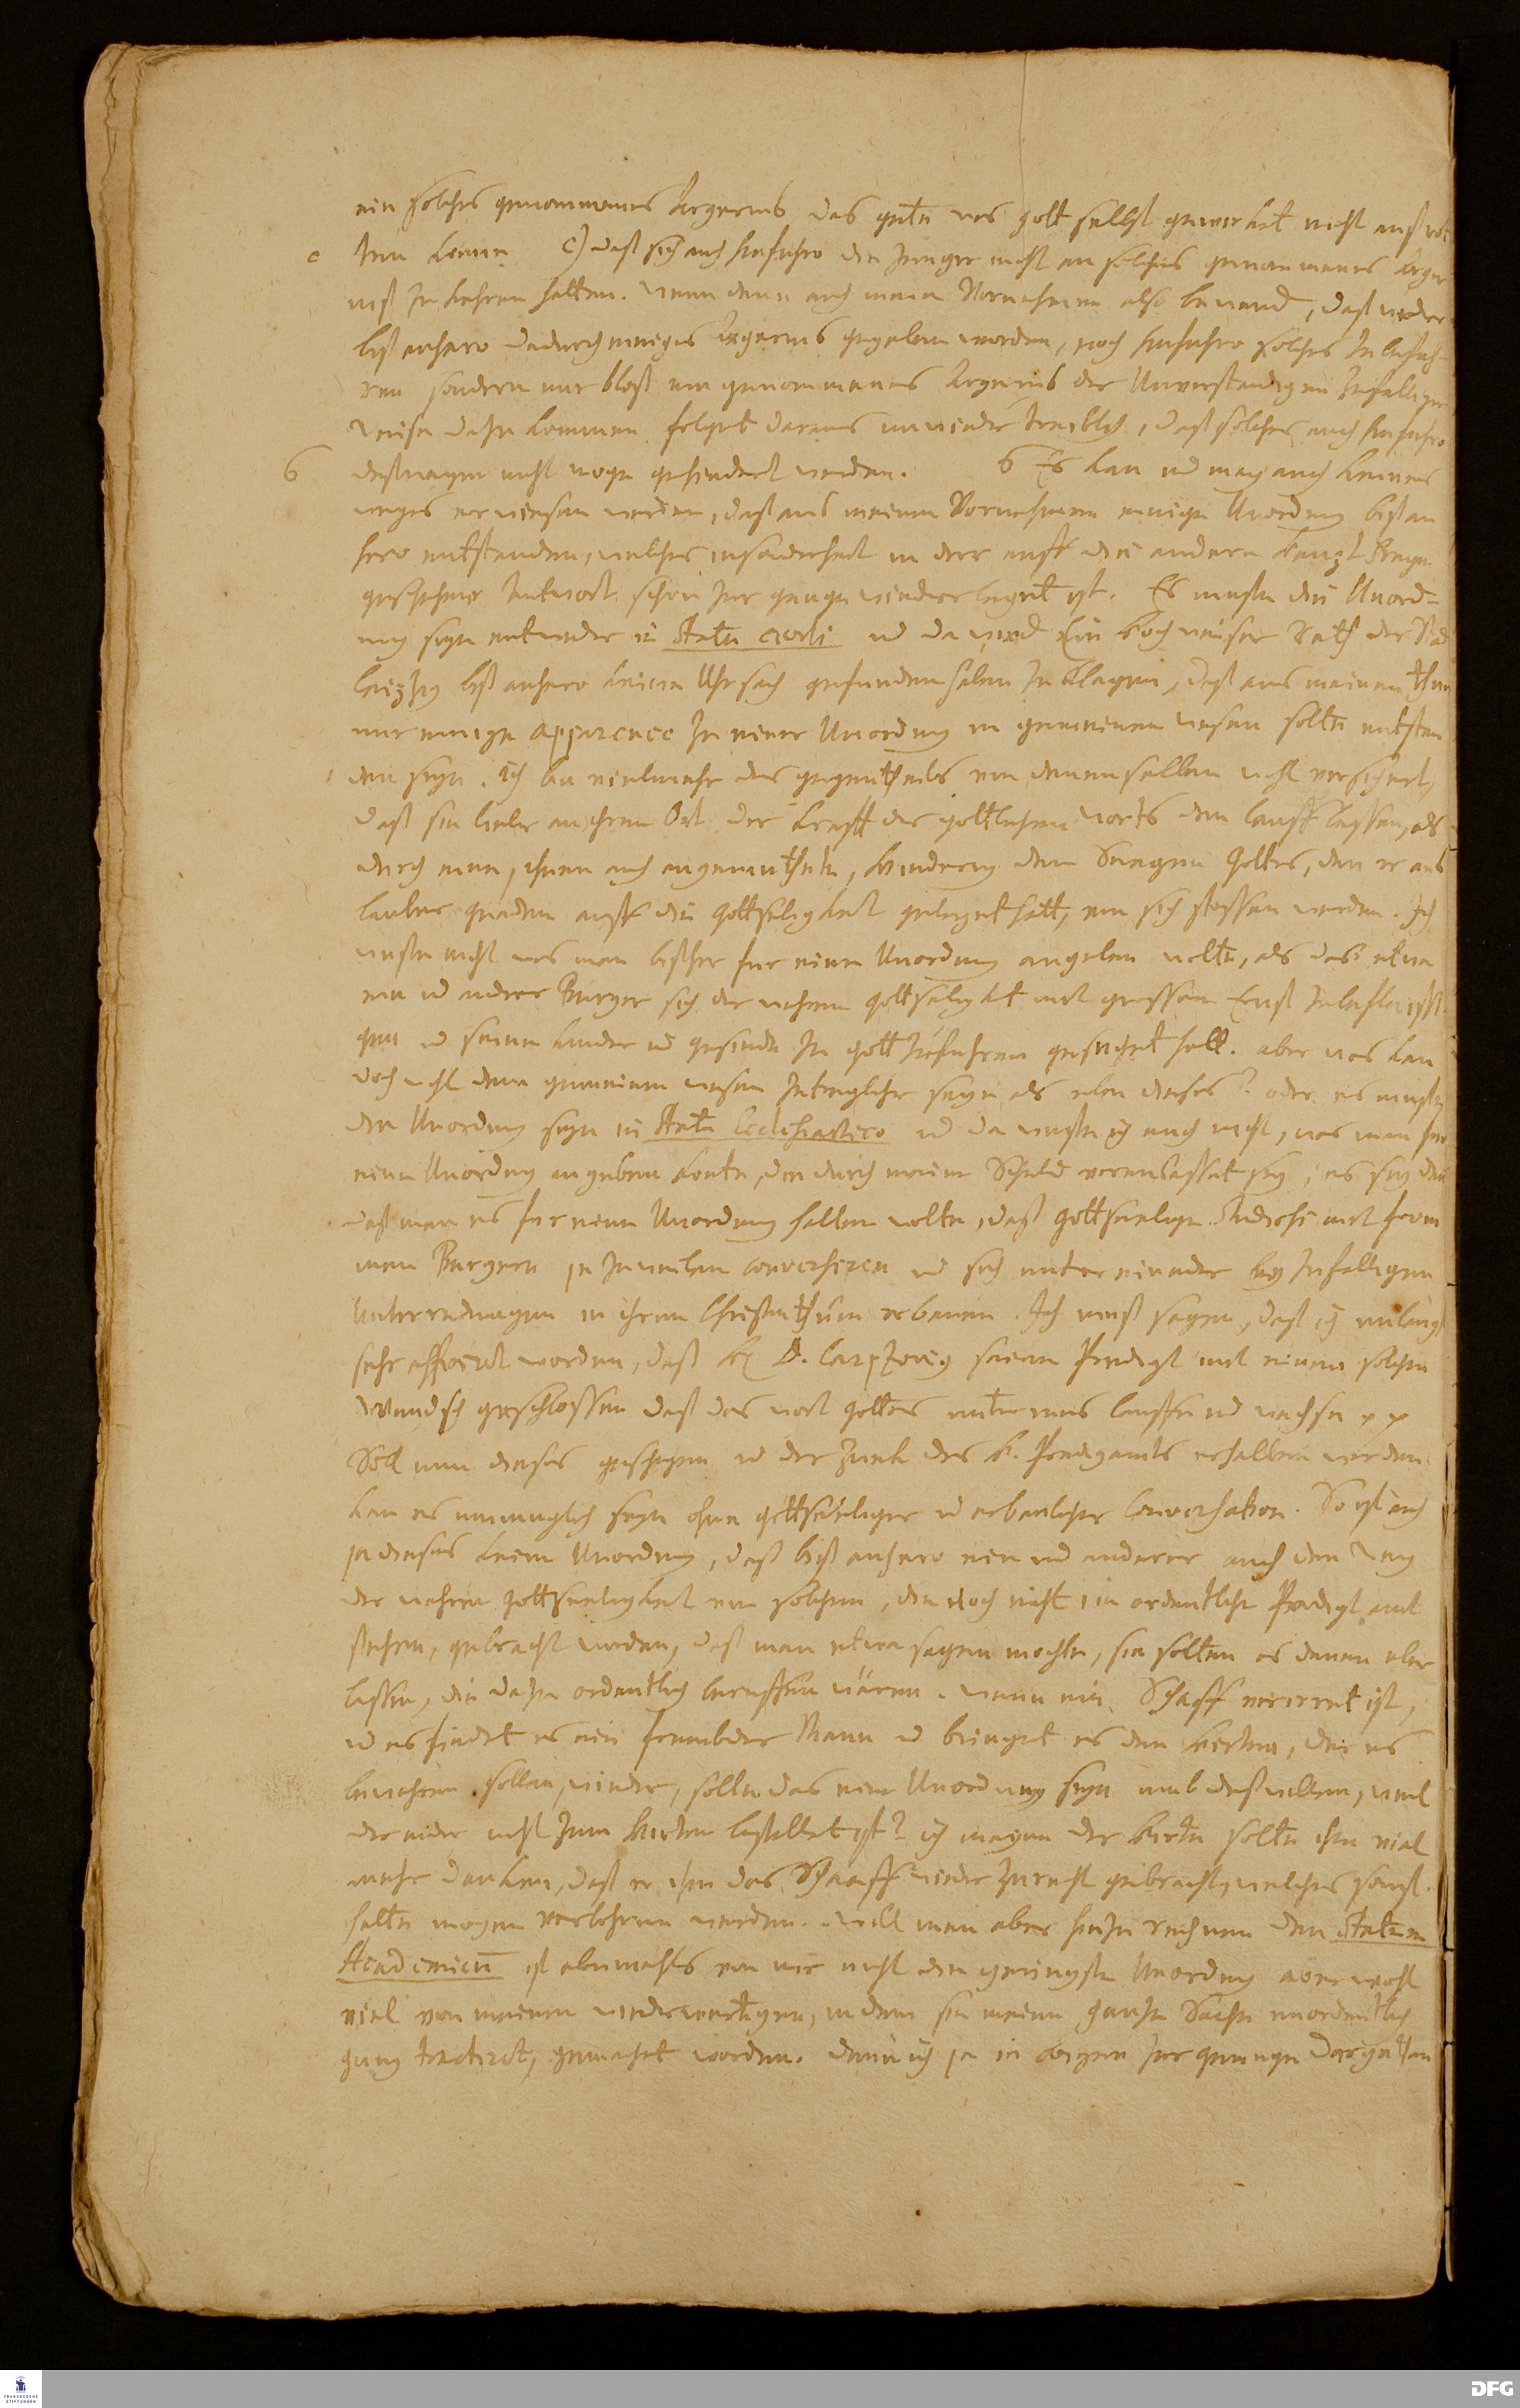 ein solches genommenes Ärgernis das gute was Gott selbst gewircket nicht außrot
c ten könne c) daß sich auch hinfuhro die Jünger nicht an solches genommenes Ärger
niß zu kehren hätten. Wenn denn auch mein Vornehmen also bewand, daß weder
biß anhero dadurch einiges Ärgernis gegeben worden, noch hinfuhro solches zu befah-
ren sondern nur bloß ein genommenes Ärgernis der Unverständigen zufälliger
weise dazu kommen folget daraus unwiedertreiblich, daß solches auch hinfuhro
6 deßwegen nicht möge gehindert werden. 6 Es kan und mag auch keines
weges erwiesen werden, daß aus meinem Vornehmen einige Unordnung bißan
hero entstanden, welches insonderheit in der auff die andere Frage
geschehene Antwort schon zur genüge wiederleget ist. Es müste die Unord-
nung seyn entweder in Statu civili und da wird Ein Hochweiser Rath der Stad
Leipzig biß anhero keine Uhrsach gefunden haben zu klagen, daß aus meinem thun
nur einige apparence zu einer Unordnung im gemeinen wesen solte entstan
den seyn. Ich bin vielmehr des gegentheils von denenselben wohl versichert,
daß sie lieber an ihrem Ort der Krafft des göttlichen Worts den lauff lassen, als
durch eine, ihnen auch angemuthete, hinderung den Seegen Gottes, den er aus
lauter gnaden auff die Gottseligkeit geleget hatt, von sich stossen werden. Ich
wüste nicht was man bißher für eine Unordnung angeben wolte, als das etwa
ein und ander Bürger sich der wahren Gottseligkeit mit grossem Ernst zu befleissi-
gen und seine Kinder und gesinde zu Gott zuführen gesuchet hatt. aber was kan
doch wohl dem gemeinen wesen zuträglicher seyn als eben dieses? oder es müste
die Unordnung seyn in Statu Ecclesiastico und da wüste ich auch nicht, was man für
eine Unordnung angeben könte, die durch meine Schuld veranlasset sey, es sey denn
daß man es für eine Unordnung halten wolte, daß gottseelige Studiosi mit from
men Bürgern ja zuweilen conversiren und sich unter einander bey zufälligen
Unterredungen in ihrem Christenthum erbauen. Ich muß sagen, daß ich unlängst
sehr afficirt worden, daß H. D. Carpzovig seine Predigt mit einem solchen
Wundsch geschlossen daß das wort Gottes unter uns lauffe und wachse pp
Soll nun dieses geschehen und der Zweck des H. Predigamts erhalten werden
kan es unmüglich seyn ohne gottseeliger und erbaulicher Conversation. So ist auch
ja dieses keine Unordnung, daß biß anhero ein und anderer auch den Weg
der wahren Gottseeligkeit von solchen, die noch nicht im ordentlichen Predigtamt
stehen, gebracht worden, daß man etwa sagen möchte, sie solten es denen über
lassen, die dazu ordentlich beruffen wären. Wenn ein Schaff verirret ist,
und es findet es ein frembder Mann und bringet es dem Hirten, der es
bewahren sollen, wieder, solte das eine Unordnung seyn umb deßwillen, weil
der ander nicht zum Hirten bestellet ist? ich meyne der Hirte solte ihm viel
mehr dancken, daß er ihm das Schaaff wieder zurecht gebracht, welches sonst
hätte mögen verlohren werden. Will man aber hiezu rechnen den Statum
Academicum ist abermahls von mir nicht die geringste Unordnung aber wohl
viel von meinen wiederwertigen, indem sie meine gantze Sache unordentlich
gnug tractirt, gemacht worden. Denn ich ja in obigem zur genüge dargethan